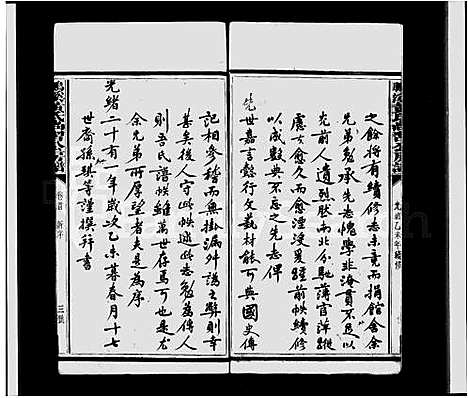 之餘將有續修志未竟而捐舘舍余
兄弟勉承先志愧學非海貫不足以
光前人遺烈然南北分馳薄宦萍蹤
慮女愈久而愈湮沒爰踵前帙續修
以成數典不忘之先志俾
先世嘉言懿行文藝材能可與國史傳
記相參稽而無掛漏舛譌之弊則幸
甚矣後人守此帙述此志勉爲傳人
則吾氏譜帙雖萬世存焉可也是尤
余兄弟所厚望者夫是爲序
光緒二十有一年歲次乙未暮春月十七
世裔孫 等謹撰行書
光緒乙未年續修
卷首 新序
三